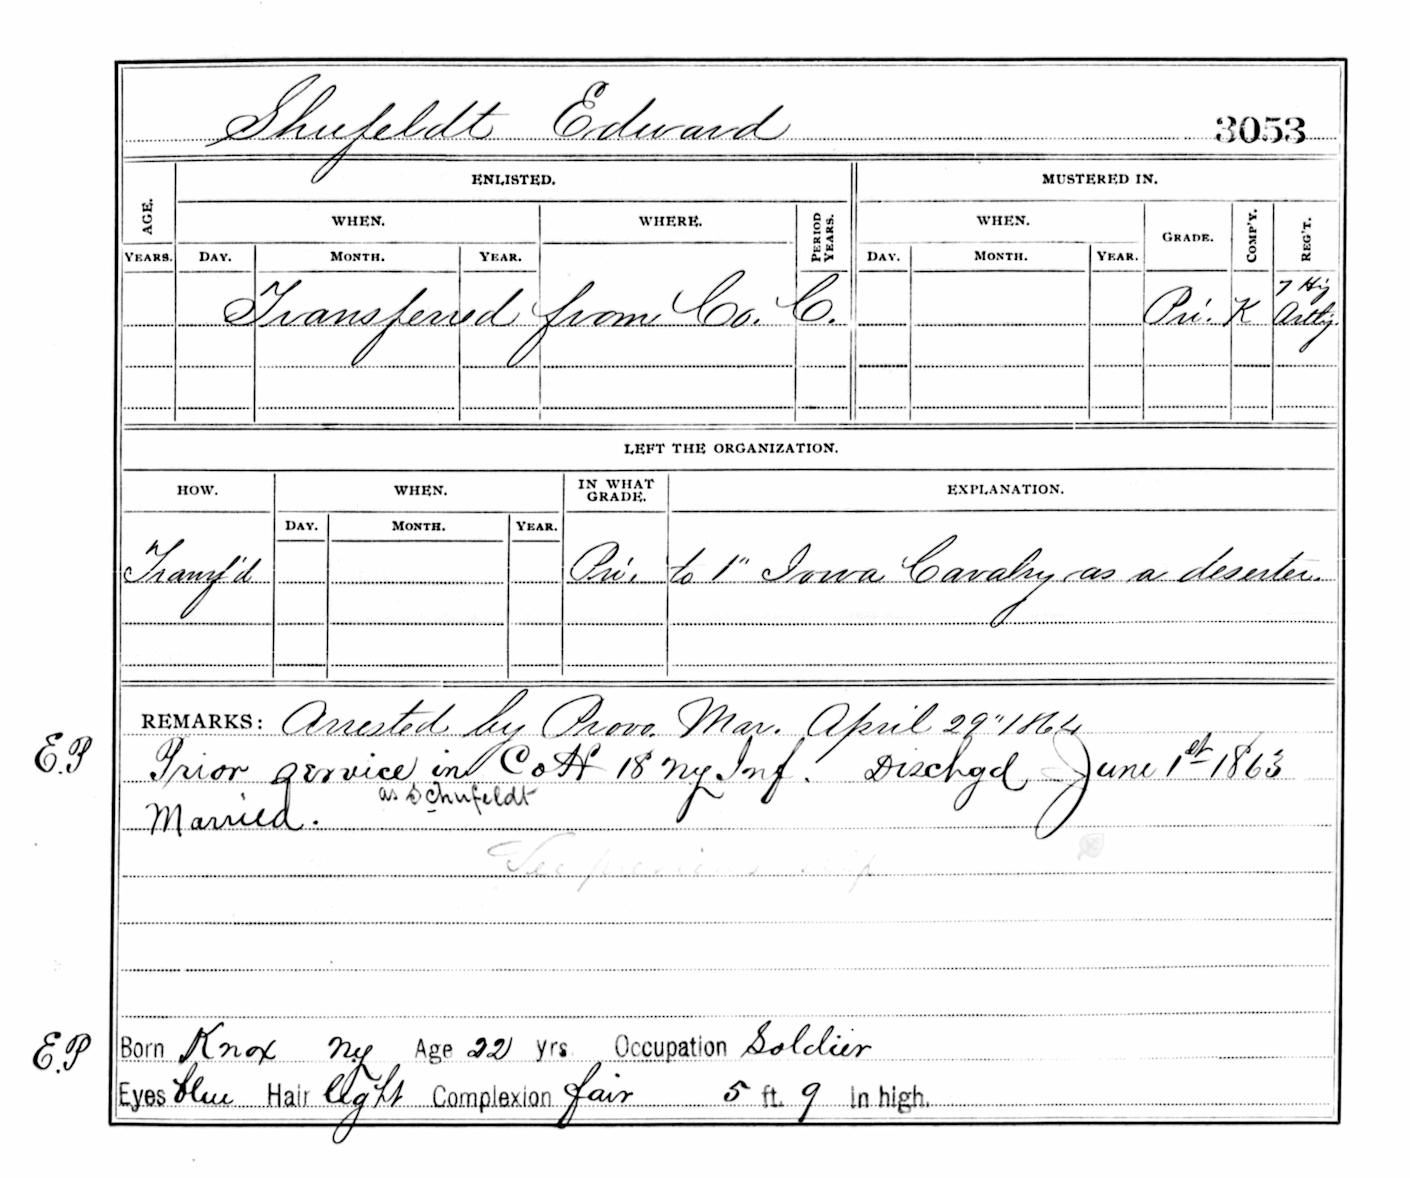 Shufeldt Edward 3053
ENLISTED. MUSTERED IN.
AGE. WHEN. WHERE. PERIOD YEARS. WHEN. GRADE. COMP'Y. REG'T.
YEARS. DAY. MONTH. YEAR. DAY. MONTH. YEAR.
Transferred from Co. C. Pri. K 7 Hvy Art'y.
LEFT THE ORGANIZATION.
HOW. WHEN. IN WHAT GRADE. EXPLANATION.
DAY. MONTH. YEAR.
Transf'd Pri. to 1" Iowa Cavalry as a deserter.
REMARKS: Arrested by Provo. Mar. April 29" 1864
E.P Prior service in Co H 18 Ny Inf. Dischgd June 1st 1863
as Schufeldt
Married.
See previous slip
E.P Born Knox Ny Age 22 yrs Occupation Soldier
Eyes blue Hair light Complexion fair 5 ft. 9 in high.